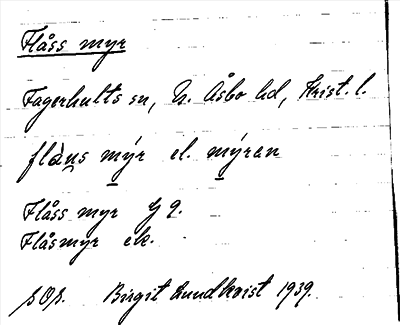 Flåss myr
Fagerhults sn, N. Åsbo hd, Krist. l.
flåu̯s mýr el. mýran
Flåss myr G 9.
Flåsmyr ek.
Birgit Lundkvist 1939.